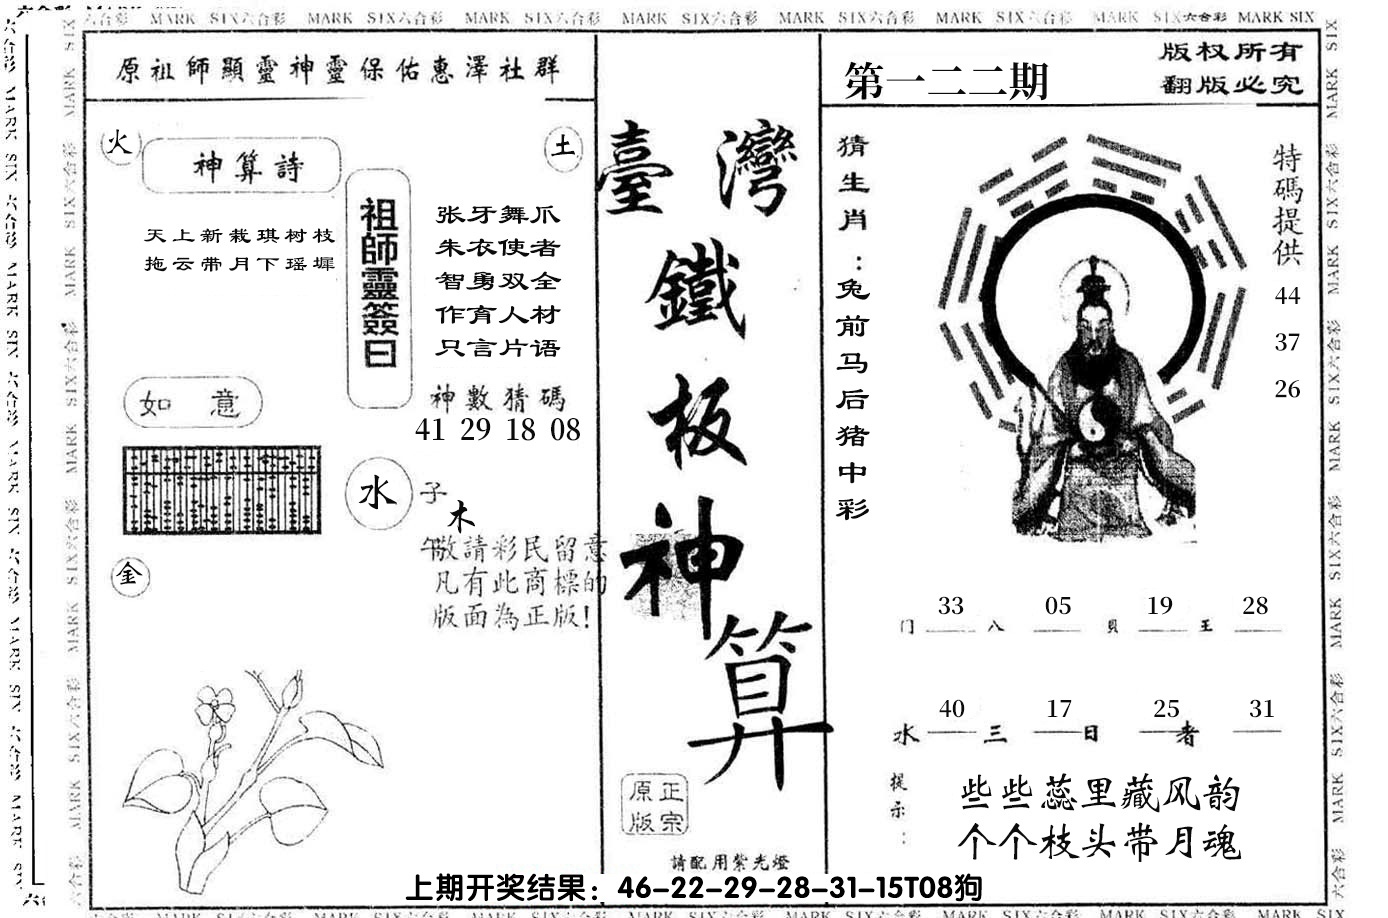 六合彩 MARK SIX六合彩 MARK SIX六合彩 MARK SIX六合彩 MARK SIX六合彩 MARK SIX六合彩 MARK SIX六合彩 MARK SIX六合彩 MARK SIX
原祖師顯靈神靈保佑惠澤社群
火
神算詩
土
天上新栽琪树枝
拖云带月下瑶墀
祖師靈簽曰
张牙舞爪
朱衣使者
智勇双全
作育人材
只言片语
如意
神數猜碼
41 29 18 08
水
子
木
午
金
敬請彩民留意
凡有此商標的
版面為正版!
臺灣
鐵
板
神
算
原正
版宗
請配用紫光燈
第一二二期
版权所有
翻版必究
猜生肖:兔前马后猪中彩
特碼提供
44
37
26
33 05 19 28
门 八 貝 王
40 17 25 31
水 三 日 者
提示:
些些蕊里藏风韵
个个枝头带月魂
上期开奖结果：46-22-29-28-31-15T08狗